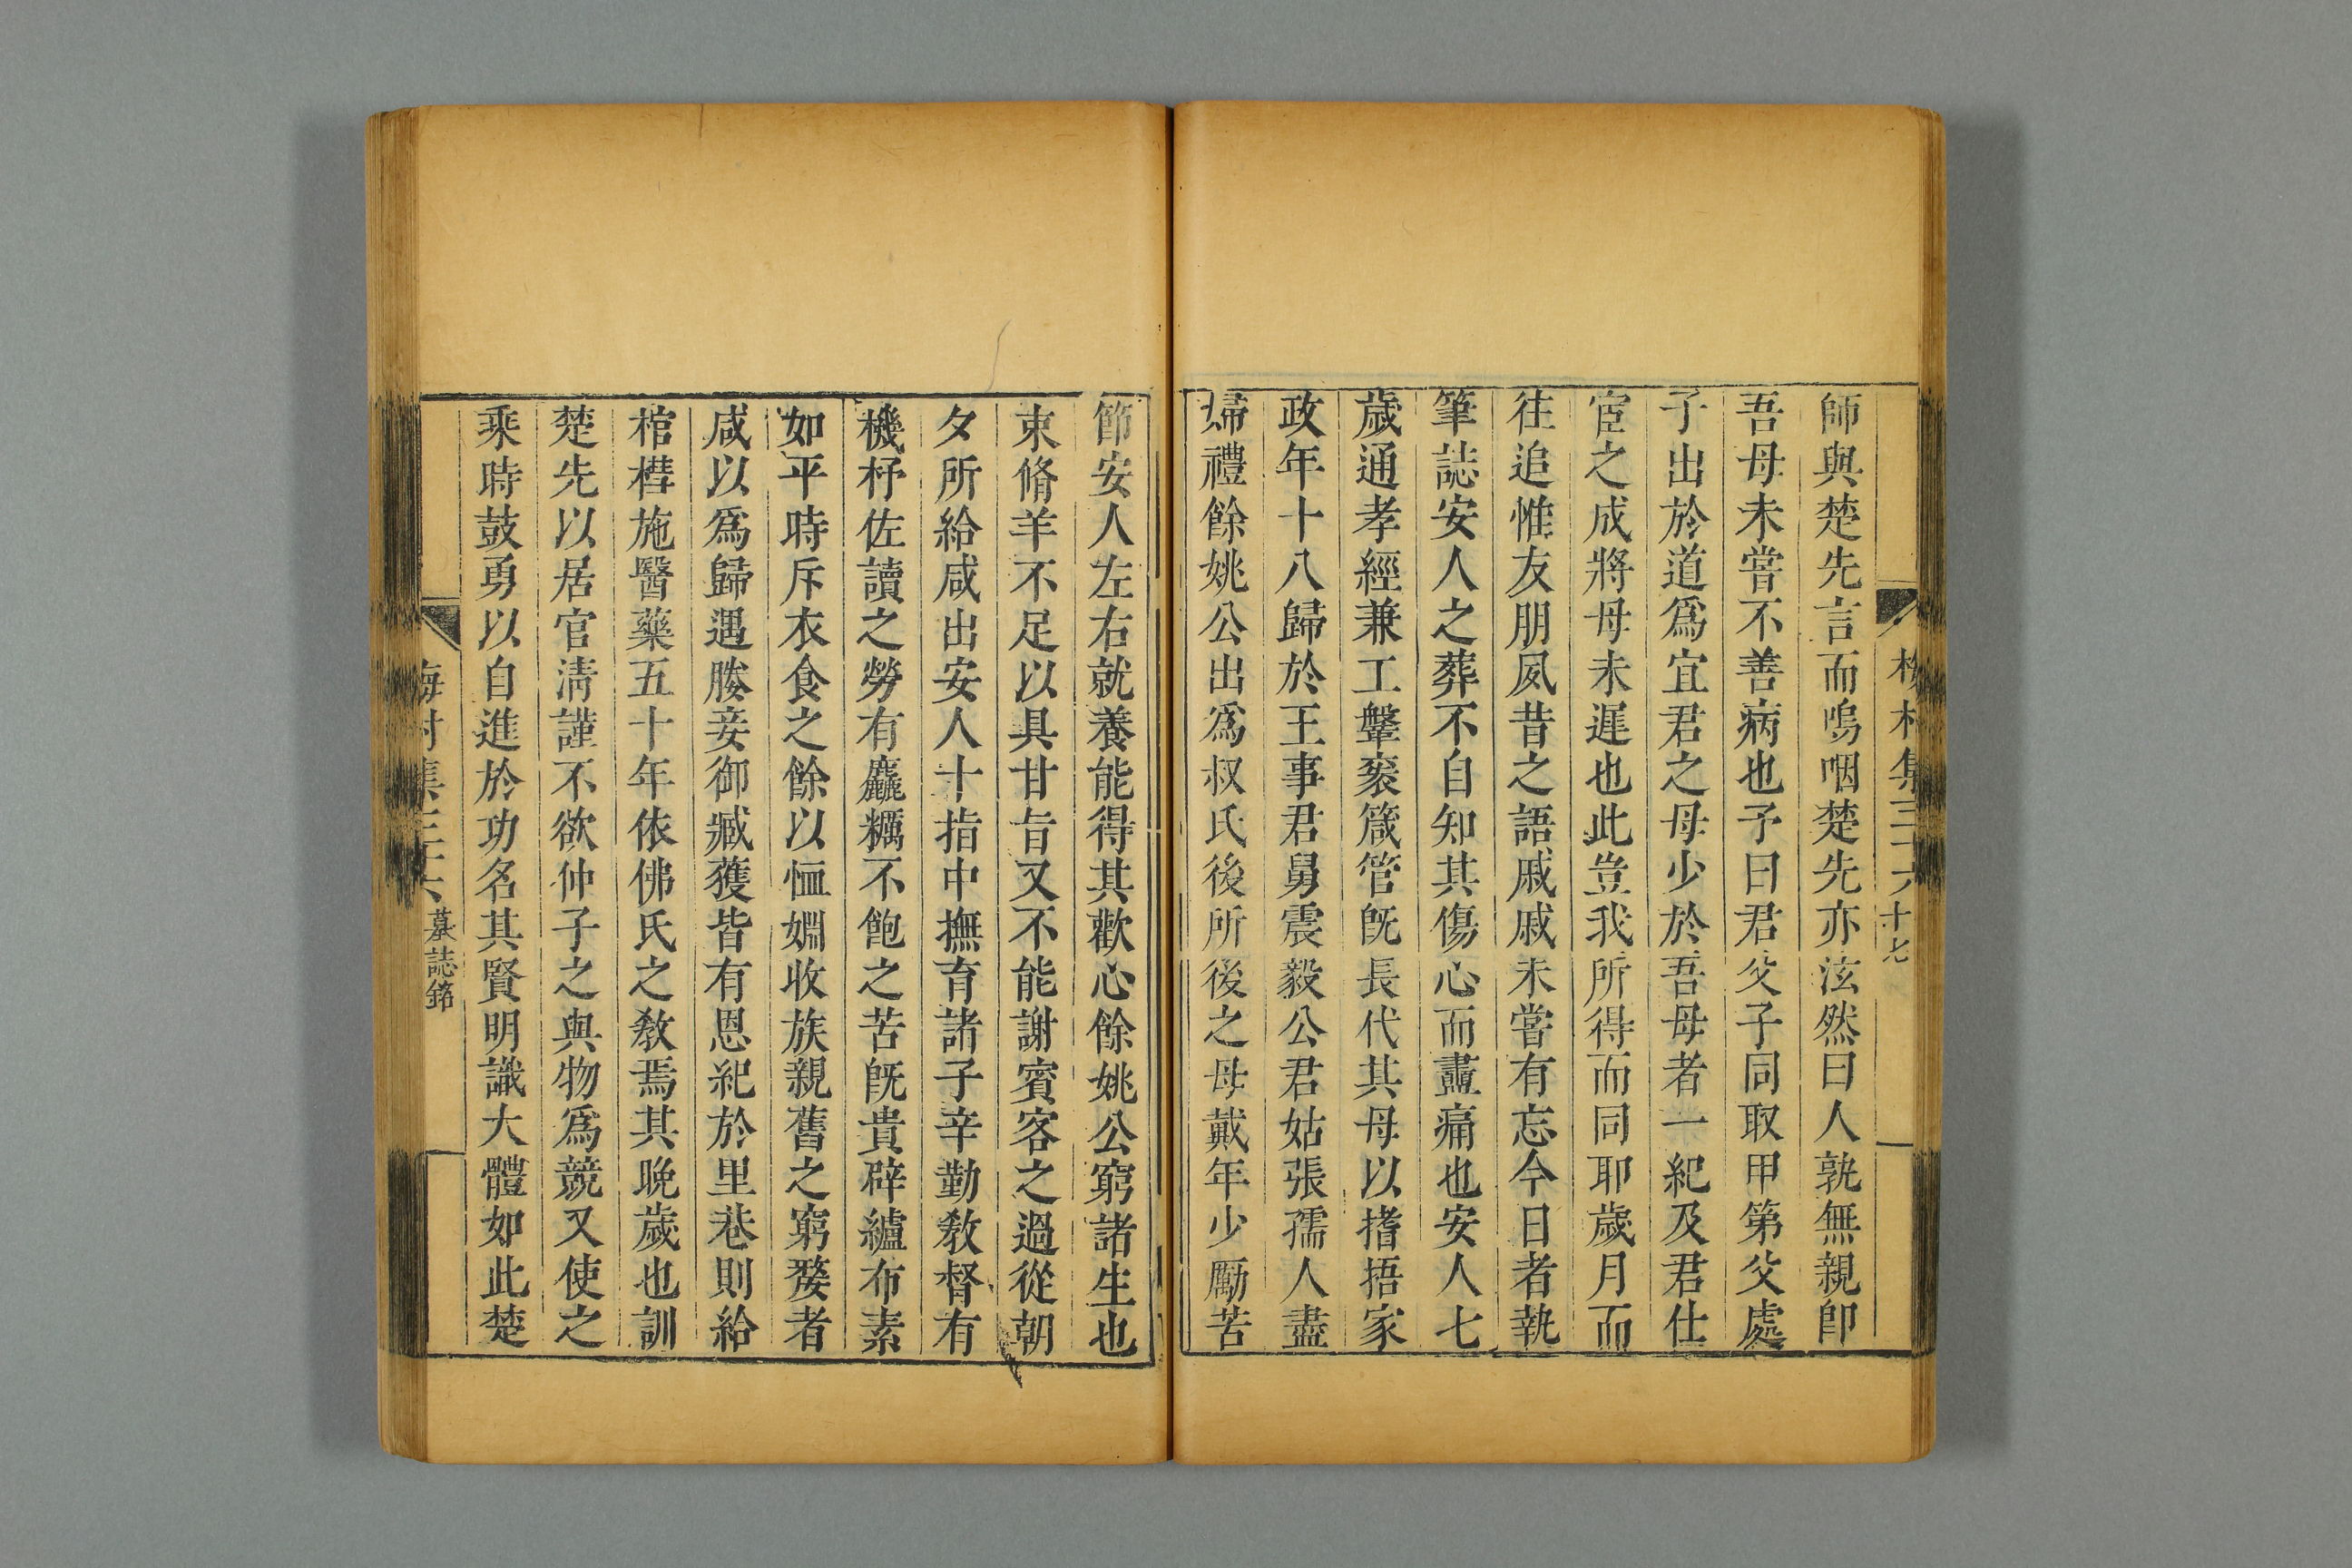 村集三十六 十七
師與楚先言而嗚咽楚先亦泫然曰人孰無親卽
吾母未嘗不善病也予曰君父子同取甲第父處
子出於道爲宜君之母少於吾母者一紀及君仕
宦之成將母未遲也此豈我所得而同耶歲月而
徃追惟友朋夙昔之語戚戚未嘗有忘今日者執
筆誌安人之葬不自知其傷心而衋痛也安人七
歲通孝經兼工鞶袠箴管旣長代其母以搘捂家
政年十八歸於王事君舅震毅公君姑張孺人盡
婦禮餘姚公出爲叔氏後所後之母戴年少勵苦
節安人左右就養能得其歡心餘姚公窮諸生也
束脩羊不足以具甘旨又不能謝賓客之過從朝
夕所給咸出安人十指中撫育諸子辛勤敎督有
機杼佐讀之勞有麤糲不飽之苦旣貴辟纑布素
如平時斥衣食之餘以恤婣收族親舊之窮嫠者
咸以爲歸遇媵妾御臧獲皆有恩紀於里巷則給
棺槥施醫藥五十年依佛氏之敎焉其晚歲也訓
楚先以居官淸謹不欲仲子之與物爲競又使之
乘時鼓勇以自進於功名其賢明識大體如此楚
梅村集三十六 墓誌銘